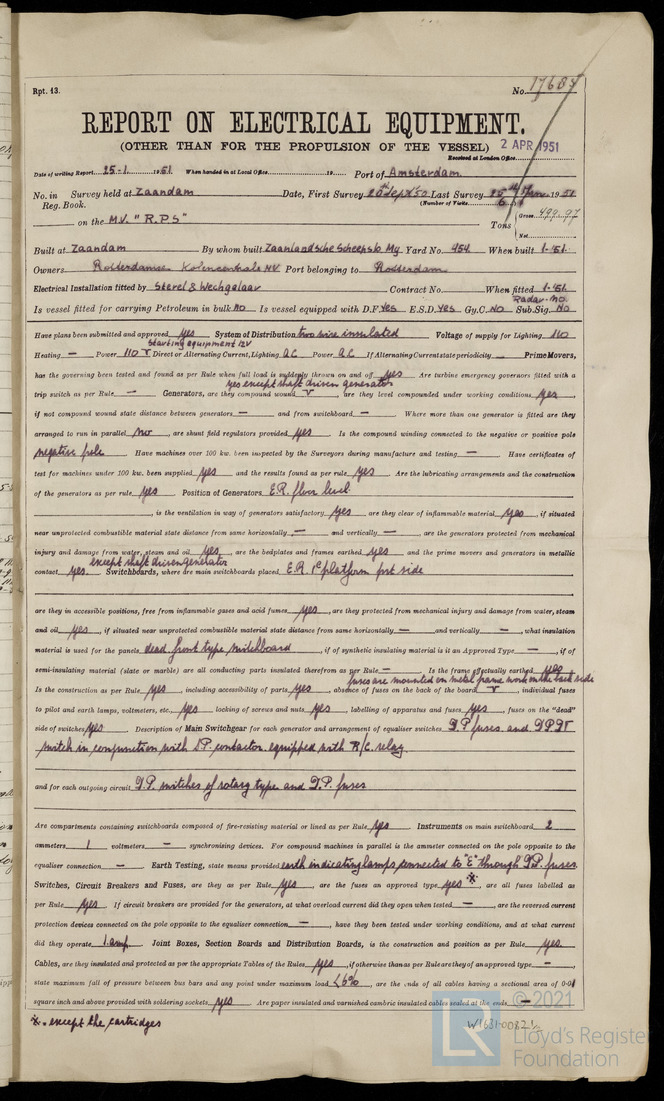 Rpt. 13. No. 17685
REPORT ON ELECTRICAL EQUIPMENT.
(OTHER THAN FOR THE PROPULSION OF THE VESSEL) 2 APR 1951
Received at London Office
Date of writing Report 25-1. 1951. When handed in at Local Office 19 Port of Amsterdam
No. in Survey held at Zaandam Date, First Survey 20th Sept '50 Last Survey 25th Jan. 1951
Reg. Book. (Number of Visits 6)
on the M.V. "R.P.S" Tons Gross 499.97
Net
Built at Zaandam By whom built Zaanlandsche Scheepsb. My. Yard No. 454 When built 1-'51.
Owners Rotterdamse Kolencentrale NV Port belonging to Rotterdam
Electrical Installation fitted by Sterel & Wechgelaar Contract No. When fitted 1-'51.
Radar. no.
Is vessel fitted for carrying Petroleum in bulk no Is vessel equipped with D.F. yes E.S.D. yes Gy.C. no Sub.Sig. no
Have plans been submitted and approved yes System of Distribution two wire insulated Voltage of supply for Lighting 110
starting equipment 12V
Heating — Power 110 V Direct or Alternating Current, Lighting D.C Power D.C. If Alternating Current state periodicity — Prime Movers,
has the governing been tested and found as per Rule when full load is suddenly thrown on and off yes Are turbine emergency governors fitted with a
yes except shaft driven generator
trip switch as per Rule — Generators, are they compound wound V, are they level compounded under working conditions yes,
if not compound wound state distance between generators — and from switchboard — Where more than one generator is fitted are they
arranged to run in parallel no, are shunt field regulators provided yes Is the compound winding connected to the negative or positive pole
negative pole Have machines over 100 kw. been inspected by the Surveyors during manufacture and testing — Have certificates of
test for machines under 100 kw. been supplied yes and the results found as per rule yes Are the lubricating arrangements and the construction
of the generators as per rule yes Position of Generators E.R. floor level
, is the ventilation in way of generators satisfactory yes are they clear of inflammable material yes, if situated
near unprotected combustible material state distance from same horizontally — and vertically —, are the generators protected from mechanical
injury and damage from water, steam and oil yes, are the bedplates and frames earthed yes and the prime movers and generators in metallic
except shaft driven generator
contact yes. Switchboards, where are main switchboards placed E.R. 1st platform port side
are they in accessible positions, free from inflammable gases and acid fumes yes, are they protected from mechanical injury and damage from water, steam
and oil yes, if situated near unprotected combustible material state distance from same horizontally — and vertically —, what insulation
material is used for the panels dead front type switchboard, if of synthetic insulating material is it an Approved Type —, if of
semi-insulating material (slate or marble) are all conducting parts insulated therefrom as per Rule — Is the frame effectually earthed yes
fuses are mounted on metal frame work on the back side
Is the construction as per Rule yes, including accessibility of parts yes, absence of fuses on the back of the board V, individual fuses
to pilot and earth lamps, voltmeters, etc., yes locking of screws and nuts yes, labelling of apparatus and fuses yes, fuses on the "dead"
side of switches yes Description of Main Switchgear for each generator and arrangement of equaliser switches D.P fuses and DPDT
switch in conjunction with DP. contactor equipped with R/C relay
and for each outgoing circuit D.P. switches of rotary type and D.P. fuses
Are compartments containing switchboards composed of fire-resisting material or lined as per Rule yes Instruments on main switchboard 2
ammeters 1 voltmeters — synchronising devices. For compound machines in parallel is the ammeter connected on the pole opposite to the
equaliser connection — Earth Testing, state means provided earth indicating lamps connected to "E" through D.P. fuses
Switches, Circuit Breakers and Fuses, are they as per Rule yes, are the fuses an approved type yes *, are all fuses labelled as
per Rule yes If circuit breakers are provided for the generators, at what overload current did they open when tested —, are the reversed current
protection devices connected on the pole opposite to the equaliser connection —, have they been tested under working conditions, and at what current
did they operate 1 amp. Joint Boxes, Section Boards and Distribution Boards, is the construction and position as per Rule yes.
Cables, are they insulated and protected as per the appropriate Tables of the Rules yes, if otherwise than as per Rule are they of an approved type —,
state maximum fall of pressure between bus bars and any point under maximum load <6%, are the ends of all cables having a sectional area of 0·01
square inch and above provided with soldering sockets yes Are paper insulated and varnished cambric insulated cables sealed at the ends —
*. except the cartridges
W1631-0082
© 2021
LR Lloyd's Register
Foundation